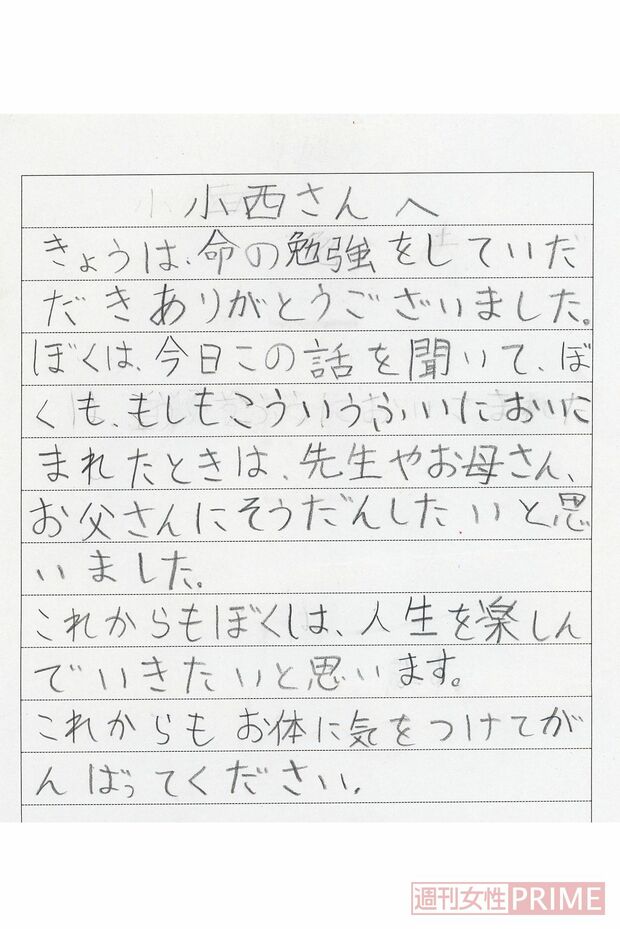 小西さんへ
きょうは、命の勉強をしていただ
だきありがとうございました。
ぼくは、今日この話を聞いて、ぼ
くも、もしもこういうふいにおいた
まれたときは、先生やお母さん、
お父さんにそうだんしたいと思
いました。
これからもぼくしは、人生を楽しん
でいきたいと思います。
これからもお体に気をつけてが
んばってください。
週刊女性PRIME